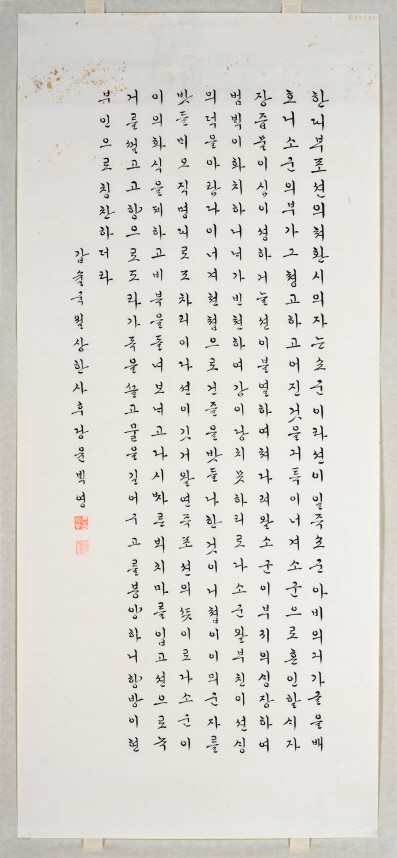 한대부포션의쳐환시의자는쇼군이라션이일죽쇼군아비의게가글을배
호니소군의부가그쳥고하고어진것을긔특이너겨소군으로혼인할시자
장즙물이심이셩하거늘션이불열하여쳐다려왈소군이부귀의싱장하여
범백이화치하니녀가빈쳔하여감이당치못하리로다소군왈부친이션싱
의덕을아람다이너겨쳔쳡으로건즐을밧들나한것이니쳡이이믜군자를
밧들미오직명대로조차리이다션이깃거왈연즉포션의쳐이로다소군이
이의화식을폐하고비복을돌녀보내고다시짜른뵈치마를입고션으로녹
거를끌고고향으로도라가독을들고물을길어구고를봉양하니향방이현
부인으로칭찬하더라
갑술국월상한사후당윤백영